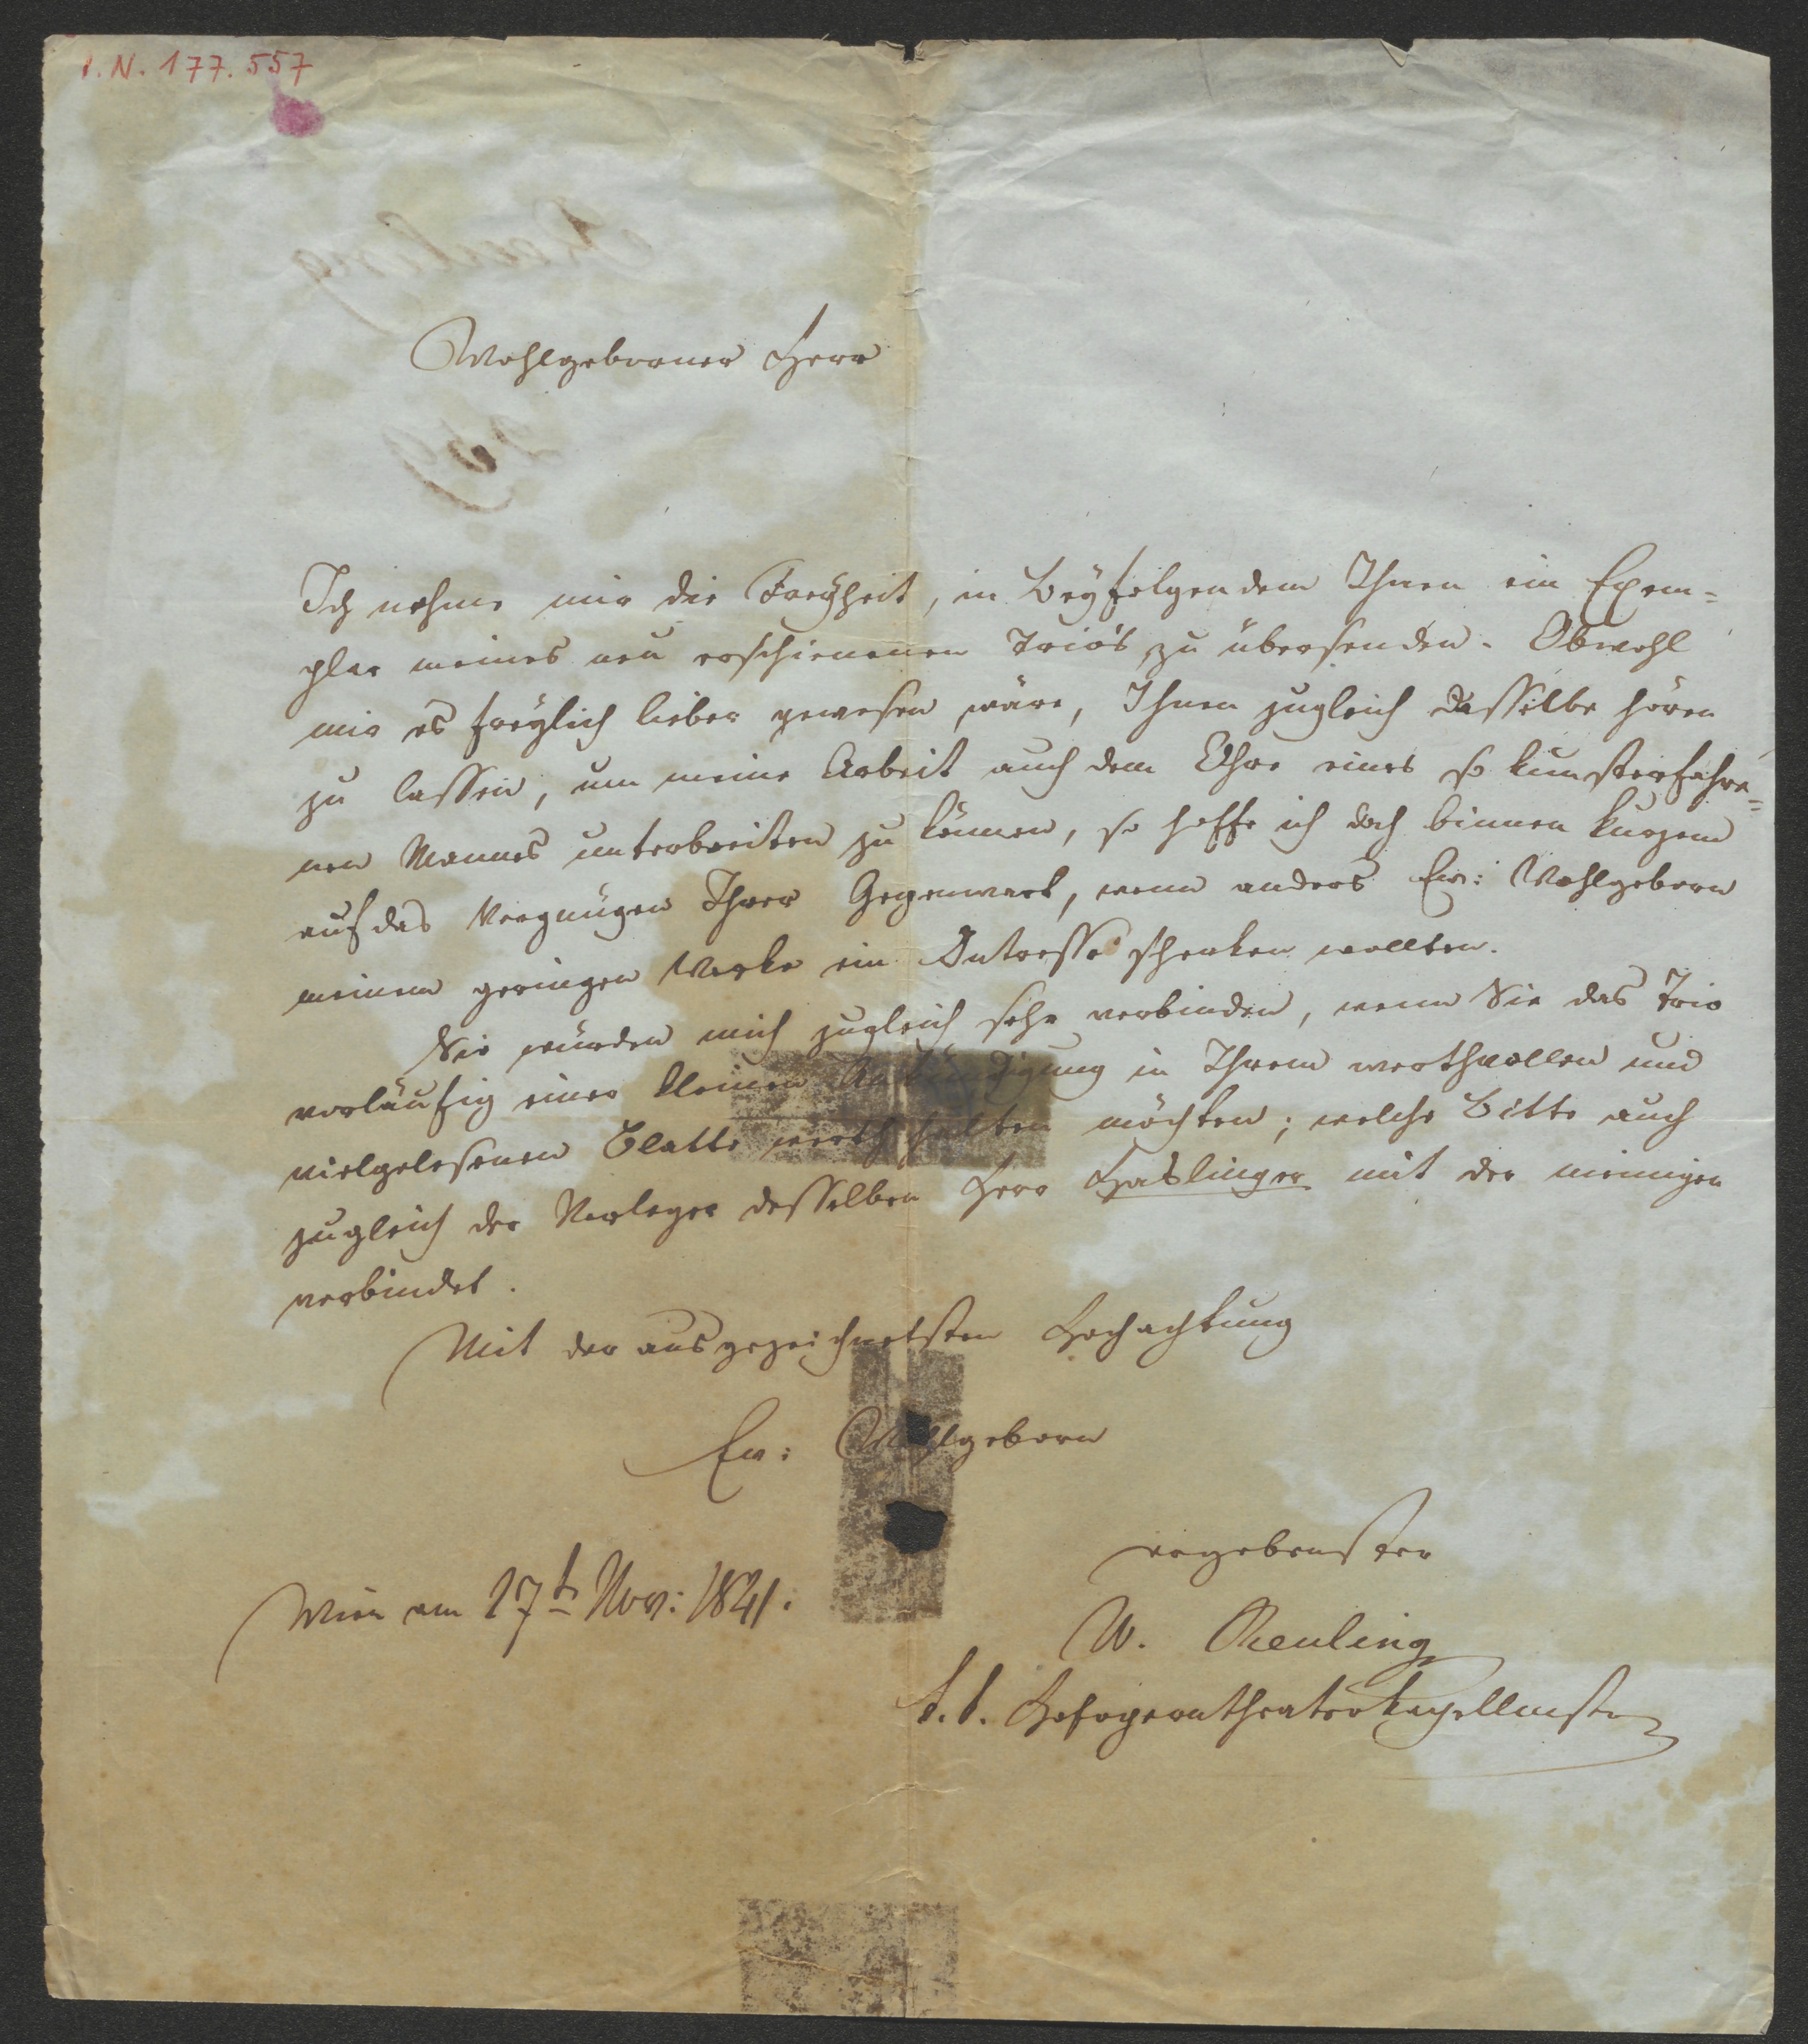 I.N. 177.557
Wohlgeborner Herr
Ich nehme mir die Freyheit, in Beyfolgendem Ihnen ein Exem=
plar meines neu erschienenen Trio's zu übersenden. Obwohl
mir es freylich lieber gewesen wäre, Ihnen zugleich dasselbe hören
zu lassen, um meine Arbeit auch dem Ohre eines so kunsterfahre=
nen Mannes unterbreiten zu können, so hoffe ich doch binnen kurzem
auf das Vergnügen Ihrer Gegenwart, wenn anders Ew: Wohlgeborn
meinem geringen Werke ein Intresse schenken wollten.
Sie würden mich zugleich sehr verbinden, wenn Sie das Trio
vorläufig einer kleinen Ankündigung in Ihrem werthvollen und
vielgelesenen Blatte werth halten möchten; welche Bitte auch
zugleich der Verleger desselben Herr Haslinger mit der meinigen
verbindet.
Mit der ausgezeichnetsten Hochachtung
Ew: Wohlgeborn
ergebenster
Wien am 17t Nov: 1841.
W. Reuling
k.k. Hofoperntheaterkapellmster